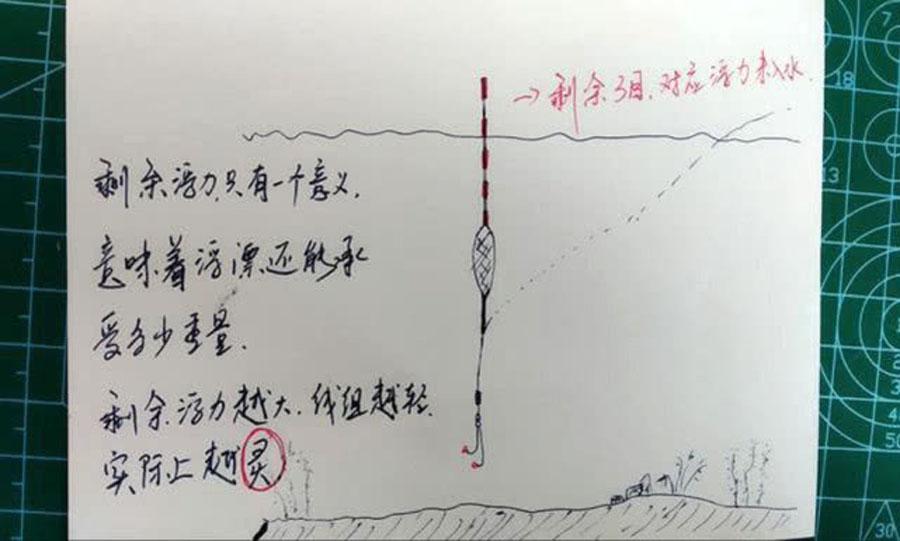 →剩余3目.对应浮力未入水.
剩余浮力.只有一个意义.
意味着浮漂还能承
受多少重量.
剩余浮力越大.线组越轻.
实际上越灵
7
18
13
1
2
3
4
50
30